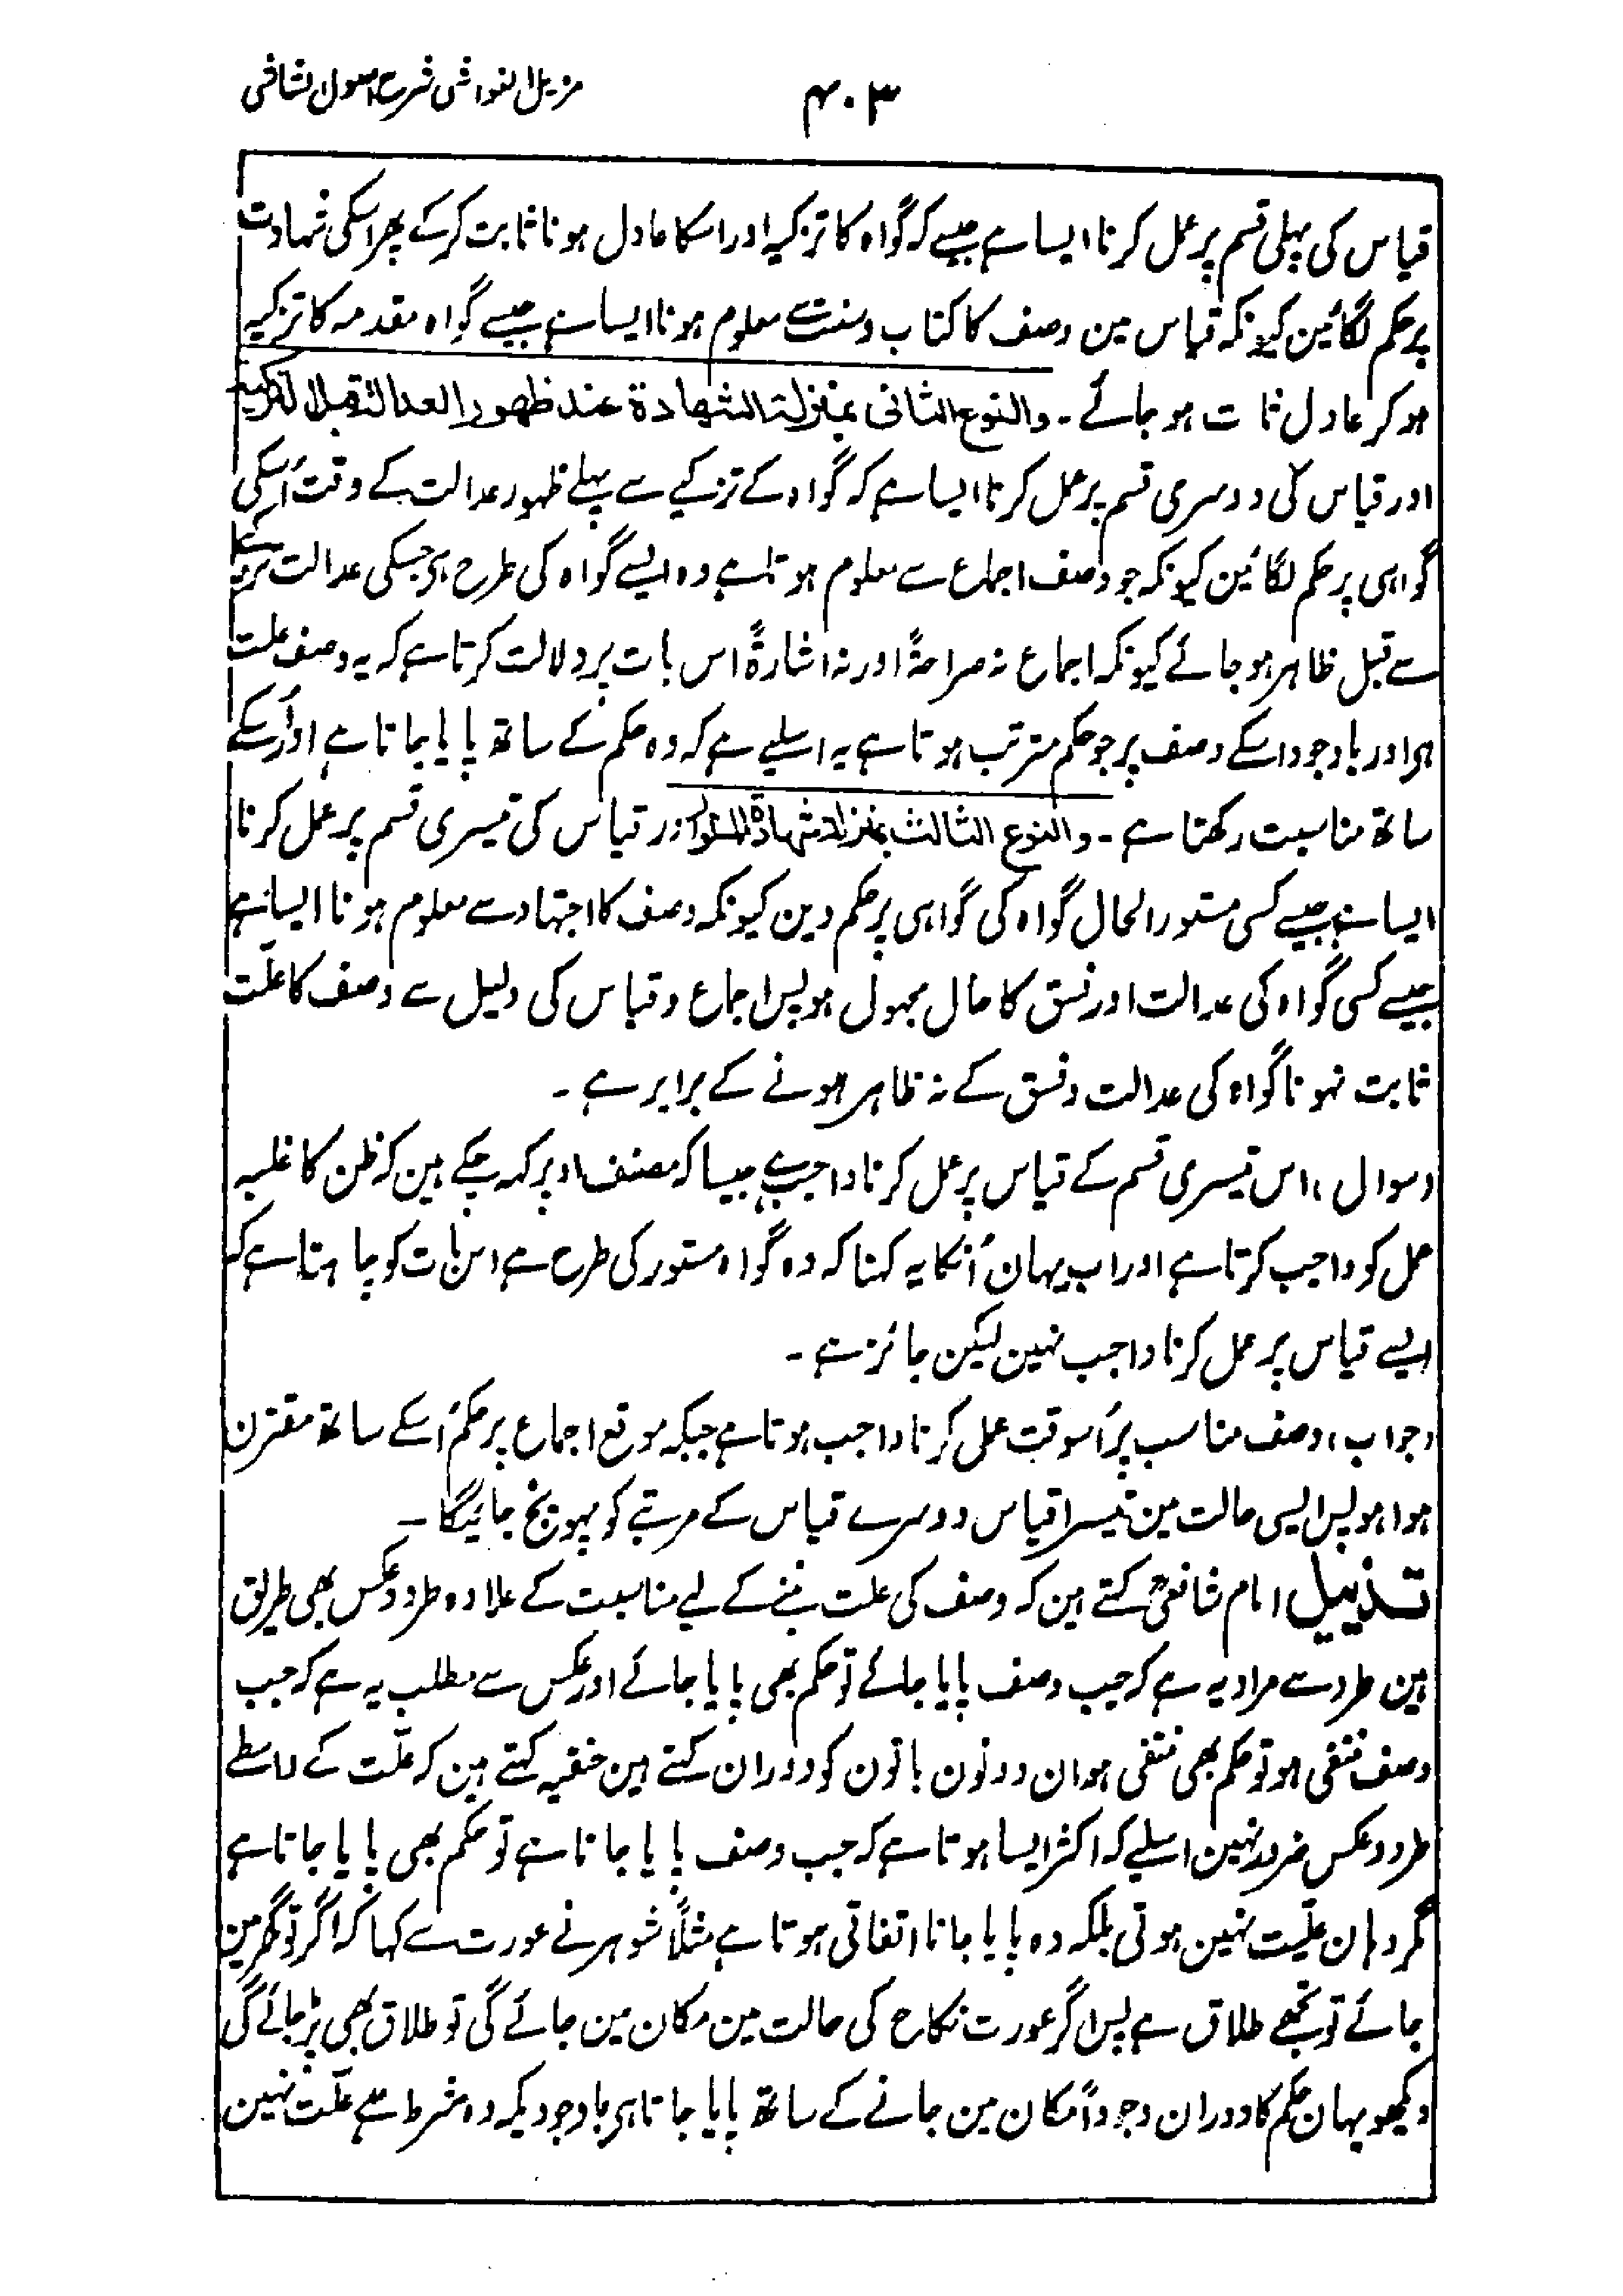 مزیل الغواشی شرح اصول الشاشی
۴۰۳
قیاس کی پہلی قسم پر عمل کرنا ایسا ہے جیسے کہ گواہ کا تزکیہ اور اسکا عادل ہونا ثابت کرکے پھر اسکی شہادت
پر حکم لگائین کیونکہ قیاس مین وصف کا کتاب وسنت سے معلوم ہونا ایسا ہے جیسے گواہ مقدمہ کا تزکیہ
ہوکر عادل ثابت ہو جائے ۔ والنوع الثانی بمنزلۃ الشھادۃ عند ظھور العدالۃ قبل التزکیۃ
اور قیاس کی دوسری قسم پر عمل کرنا ایسا ہے کہ گواہ کے تزکیے سے پہلے ظہور عدالت کے وقت اُسکی
گواہی پر حکم لگائین کیونکہ جو وصف اجماع سے معلوم ہوتا ہے وہ ایسے گواہ کی طرح ہی جسکی عدالت تزکیے
سے قبل ظاہر ہو جائے کیونکہ اجماع نہ صراحۃً اور نہ اشارۃً اس بات پر دلالت کرتا ہے کہ یہ وصف علت
ہی اور باوجود اسکے وصف پر جو حکم مترتب ہوتا ہے یہ اسلیے ہے کہ وہ حکم کے ساتھ پایا جاتا ہے اور اُسکے
ساتھ مناسبت رکھتا ہے ۔ والنوع الثالث بمنزلۃ شھادۃ المستور اور قیاس کی تیسری قسم پر عمل کرنا
ایسا ہے جیسے کسی مستور الحال گواہ کی گواہی پر حکم دین کیونکہ وصف کا اجتہاد سے معلوم ہونا ایسا ہے
جیسے کسی گواہ کی عدالت اور فسق کا حال مجہول ہو پس اجماع و قیاس کی دلیل سے وصف کا علّت
ثابت نہونا گواہ کی عدالت و فسق کے نہ ظاہر ہونے کے برابر ہے ۔
(سوال) اس تیسری قسم کے قیاس پر عمل کرنا واجب ہے جیسا کہ مصنف اوپر کہہ چکے ہین کہ ظن کا غلبہ
عمل کو واجب کرتا ہے اور اب یہان اُنکا یہ کہنا کہ وہ گواہ مستور کی طرح ہے اس بات کو چاہتا ہے کہ
ایسے قیاس پر عمل کرنا واجب نہین لیکن جائز ہے ۔
(جواب) وصف مناسب پر اُسوقت عمل کرنا واجب ہوتا ہے جبکہ موقع اجماع پر حکم اُسکے ساتھ مقترن
ہوا ہو پس ایسی حالت مین تیسرا قیاس دوسرے قیاس کے مرتبے کو پہونچ جائیگا ۔
تذییل امام شافعیؒ کہتے ہین کہ وصف کی علت بننے کے لیے مناسبت کے علاوہ طرد و عکس بھی طریق
ہین طرد سے مراد یہ ہے کہ جب وصف پایا جائے تو حکم بھی پایا جائے اور عکس سے مطلب یہ ہے کہ جب
وصف منتفی ہو تو حکم بھی منتفی ہو ان دونون باتون کو دوران کہتے ہین حنفیہ کہتے ہین کہ علّت کے واسطے
طرد و عکس ضرور نہین اسلیے کہ اکثر ایسا ہوتا ہے کہ جب وصف پایا جاتا ہے تو حکم بھی پایا جاتا ہے
مگر وہان علیّت نہین ہوتی بلکہ وہ پایا جانا اتفاقی ہوتا ہے مثلاً شوہر نے عورت سے کہا کہ اگر تو گھر مین
جائے تو تجھے طلاق ہے پس اگر عورت نکاح کی حالت مین مکان مین جائے گی تو طلاق بھی پڑ جائے گی
دیکھو یہان حکم کا دوران وجوداً مکان مین جانے کے ساتھ پایا جاتا ہی باوجودیکہ وہ شرط ہے علّت نہین